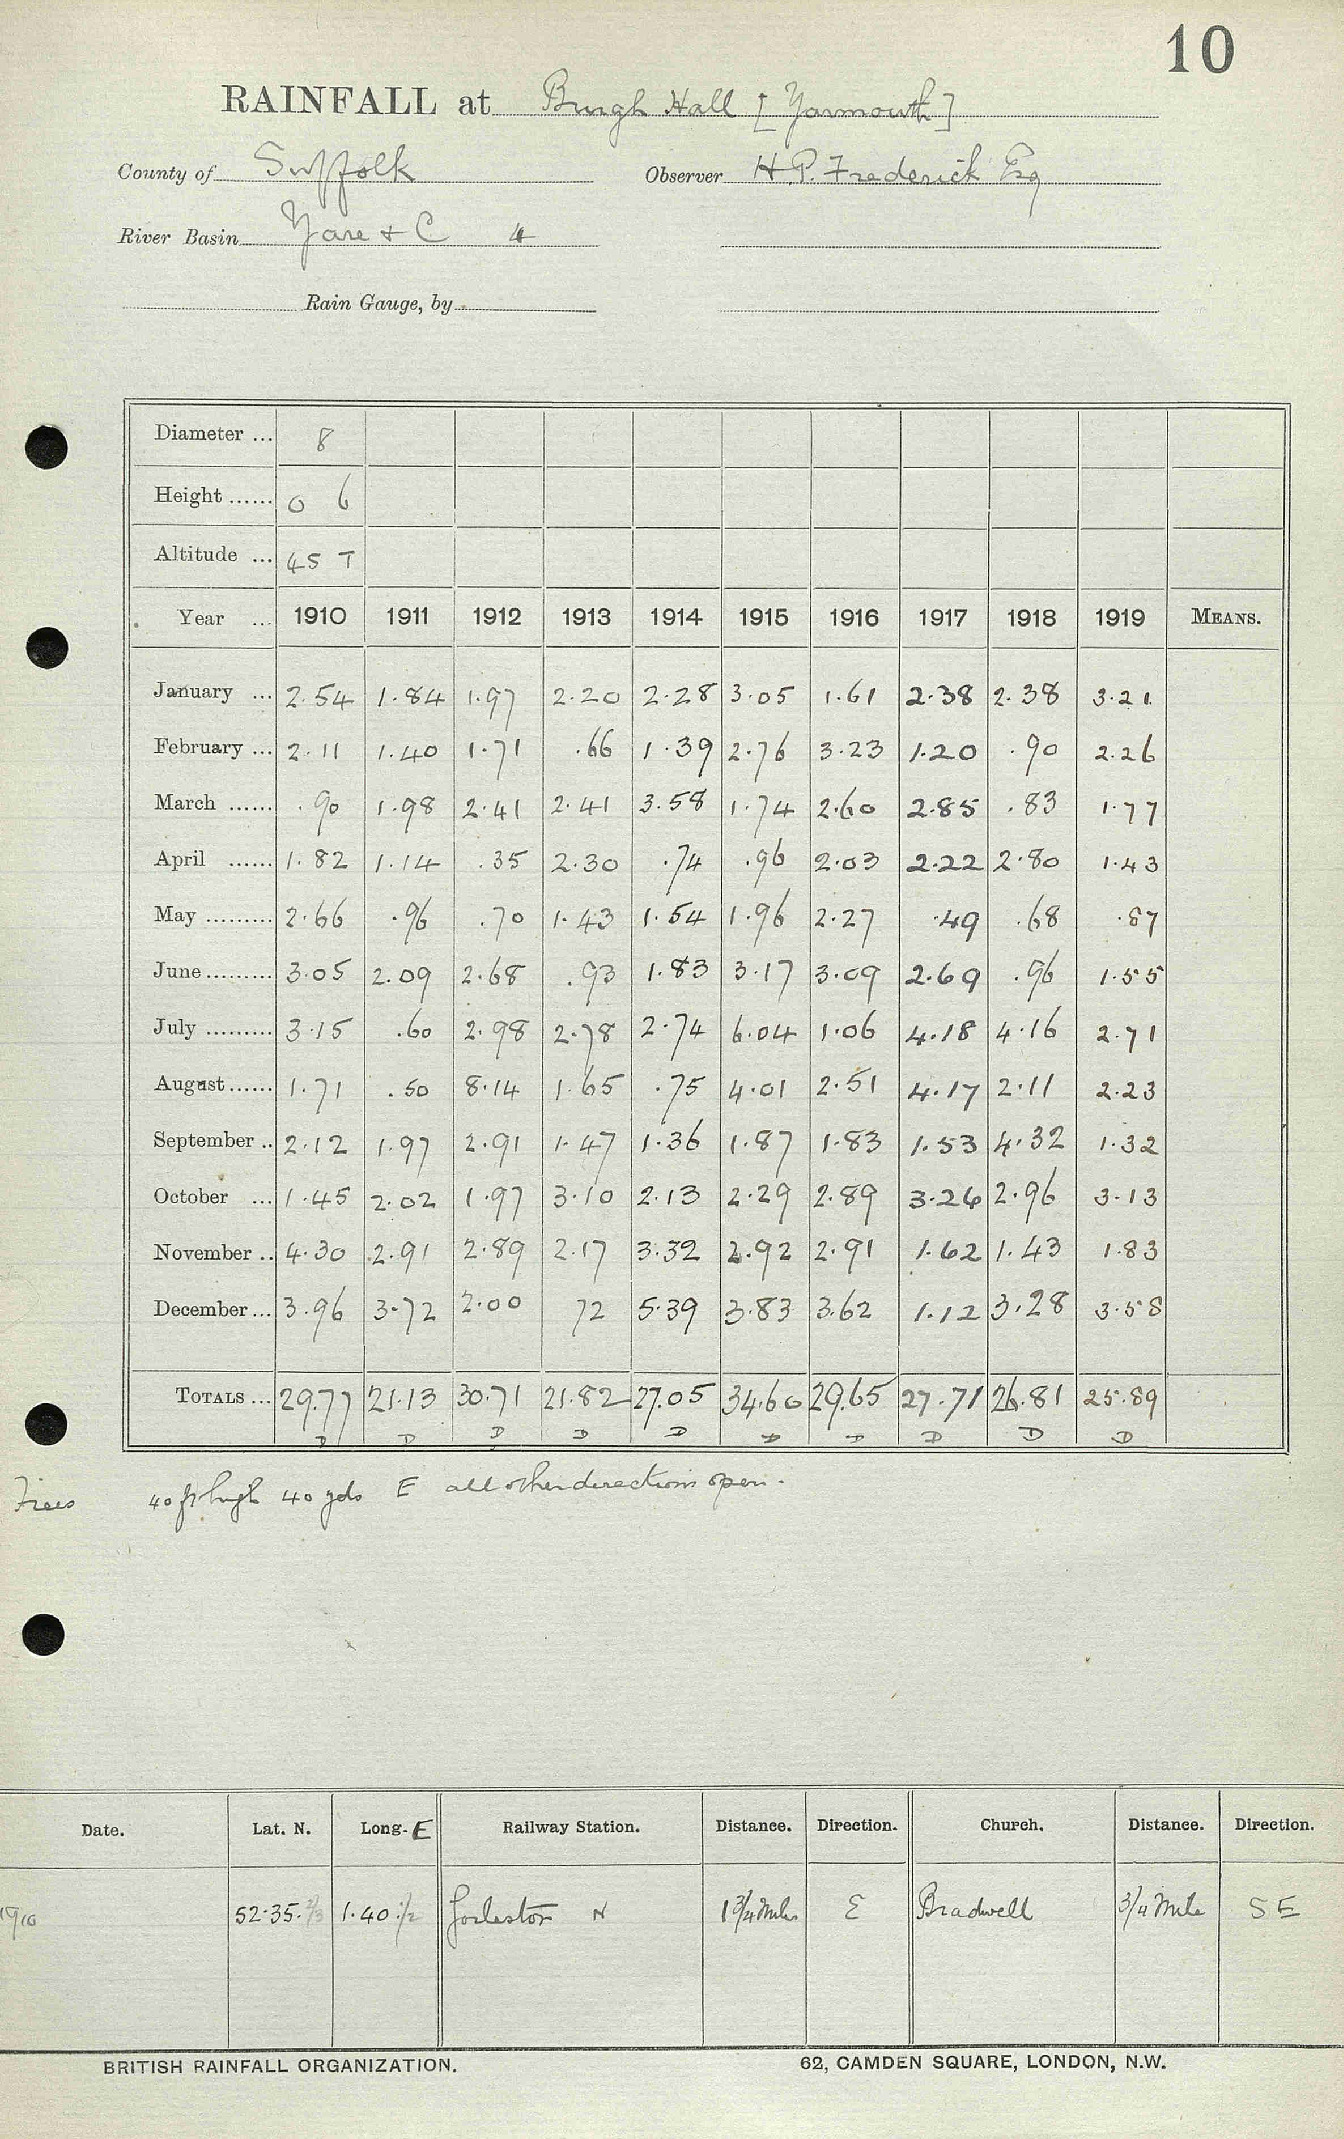 10
RAINFALL at Burgh Hall [Yarmouth]
County of Suffolk Observer H.P. Frederick Esq
River Basin Yare + C 4
Rain Gauge, by
Diameter ... 8
Height ...... 0 6
Altitude ... 45 T
Year ... 1910 1911 1912 1913 1914 1915 1916 1917 1918 1919 MEANS.
January ... 2.54 1.84 1.97 2.20 2.28 3.05 1.61 2.38 2.38 3.21
February ... 2.11 1.40 1.71 .66 1.39 2.76 3.23 1.20 .90 2.26
March ...... .90 1.98 2.41 2.41 3.58 1.74 2.60 2.85 .83 1.77
April ...... 1.82 1.14 .35 2.30 .74 .96 2.03 2.22 2.80 1.43
May ......... 2.66 .96 .70 1.43 1.54 1.96 2.27 .49 .68 .87
June ......... 3.05 2.09 2.68 .93 1.83 3.17 3.09 2.69 .96 1.55
July ......... 3.15 .60 2.98 2.78 2.74 6.04 1.06 4.18 4.16 2.71
August ...... 1.71 .50 8.14 1.65 .75 4.01 2.51 4.17 2.11 2.23
September .. 2.12 1.97 2.91 1.47 1.36 1.87 1.83 1.53 4.32 1.32
October ... 1.45 2.02 1.97 3.10 2.13 2.29 2.89 3.26 2.96 3.13
November .. 4.30 2.91 2.89 2.17 3.32 2.92 2.91 1.62 1.43 1.83
December ... 3.96 3.72 2.00 72 5.39 3.83 3.62 1.12 3.28 3.58
TOTALS ... 29.77 21.13 30.71 21.82 27.05 34.60 29.65 27.71 26.81 25.89
D D D D D D D D D D
Trees 40 ft high 40 yds E all other directions open.
Date. Lat. N. Long. E Railway Station. Distance. Direction. Church. Distance. Direction.
1910 52.35.2/3 1.40.1/2 Gorleston N 1 3/4 Miles E Bradwell 3/4 Mile SE
BRITISH RAINFALL ORGANIZATION. 62, CAMDEN SQUARE, LONDON, N.W.